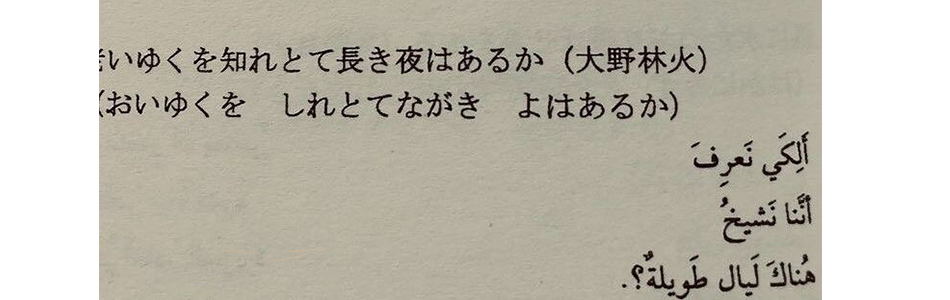 いゆくを知れとて長き夜はあるか（大野林火）
（おいゆくを　しれとてながき　よはあるか）
أَلِكَي نَعرِفَ
أنَّنا نَشيخُ
هُناكَ لَيال طَويلةٌ؟.